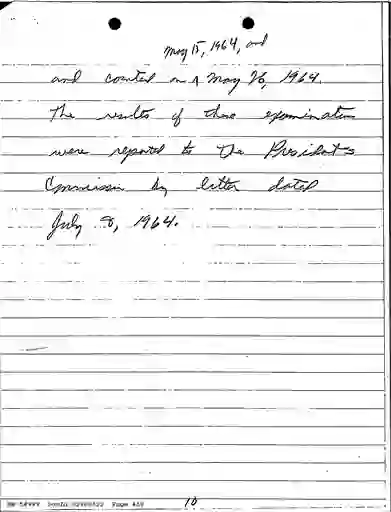 May 15, 1964, and
and counted on ^ May 26, 1964.
The results of these examinations
were reported to the President's
Commission by letter dated
July 8, 1964.
10
Page